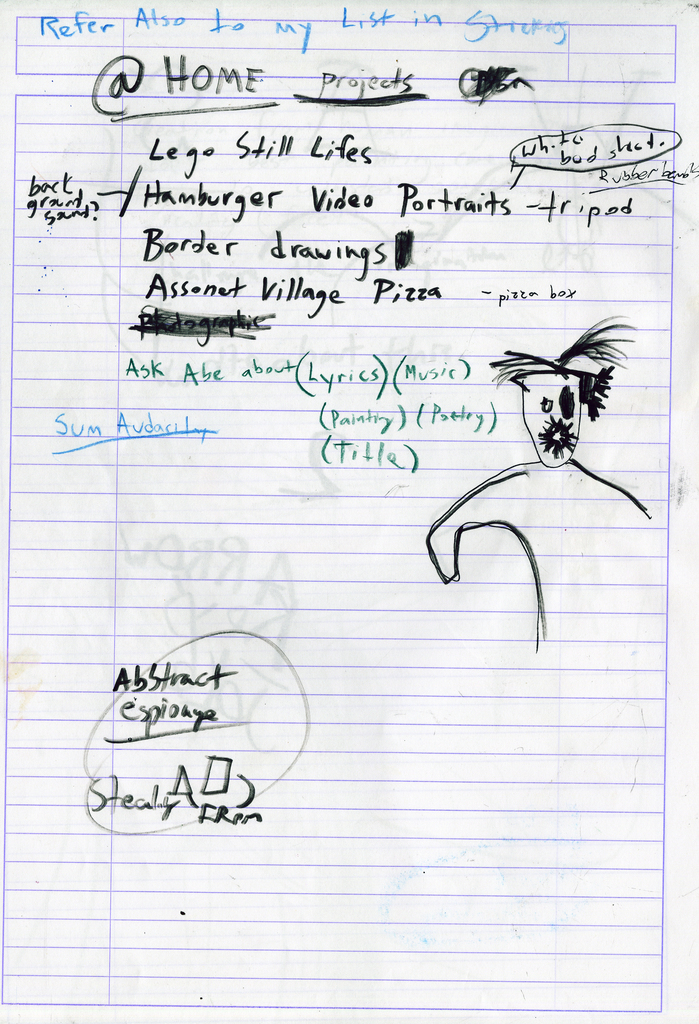 Refer Also to my List in
@ HOME projects
Lego Still Lifes
white bed sheet.
Rubber bands
back ground sound?
Hamburger Video Portraits - tripod
Border drawings
Assonet Village Pizza - pizza box
photographic
Ask Abe about (Lyrics) (Music)
(Painting) (Poetry)
(Title)
Sum Audacity
Abstract
espionage